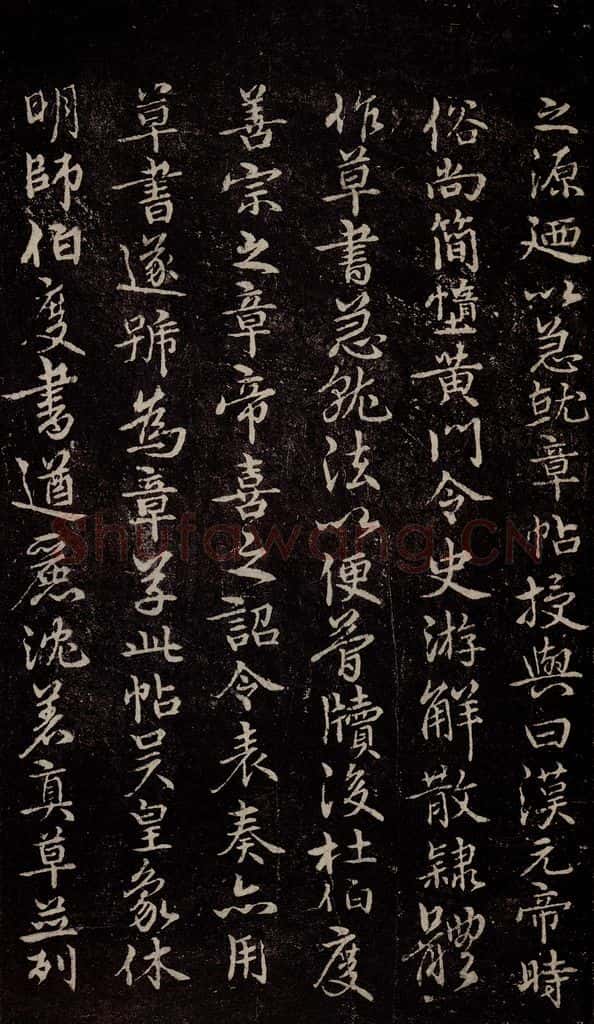 之源廼以急就章帖授與曰漢元帝時
俗尚簡惰黄門令史游解散隸體
作草書急就法以便牘後杜伯度
善宗之章帝喜之詔令表奏亦用
草書遂號為章草此帖吴皇象休
明師伯度書遒麗沈著真草並列
Shufawang.CN